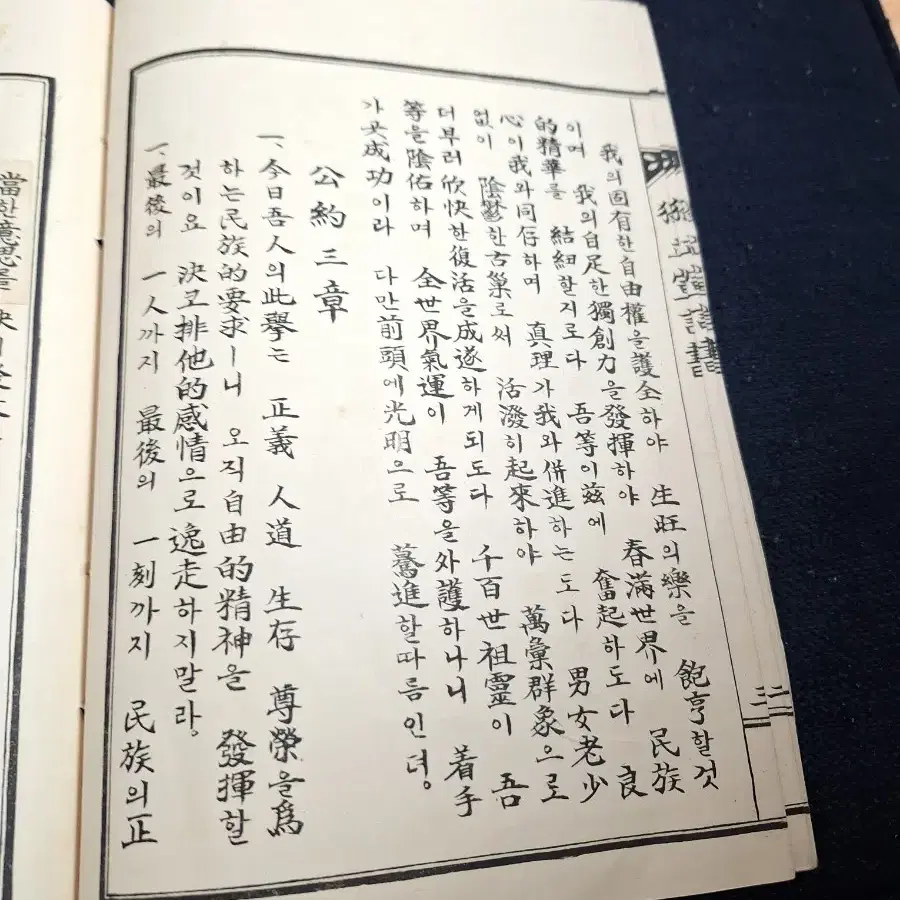 我의固有한自由權을護全하야 生旺의樂을 飽亨할것
이며 我의自足한獨創力을發揮하야 春滿世界에 民族
的精華를 結紐할지로다 吾等이玆에 奮起하도다 良
心이我와同存하며 真理가我와併進하는도다 男女老少
없이 陰鬱한古巢로써 活潑히起來하야 萬彙群象으로
더부러欣快한復活을成遂하게되도다 千百世祖靈이 吾
等을陰佑하며 全世界氣運이 吾等을外護하나니 着手
가곳成功이라 다만前頭에光明으로 驀進할따름인뎌。
公約三章
一、今日吾人의此擧는 正義 人道 生存 尊榮을爲
하는民族的要求ㅣ니 오직自由的精神을 發揮할
것이요 決코排他的感情으로逸走하지말라。
一、最後의 一人까지 最後의 一刻까지 民族의正
當한意思를